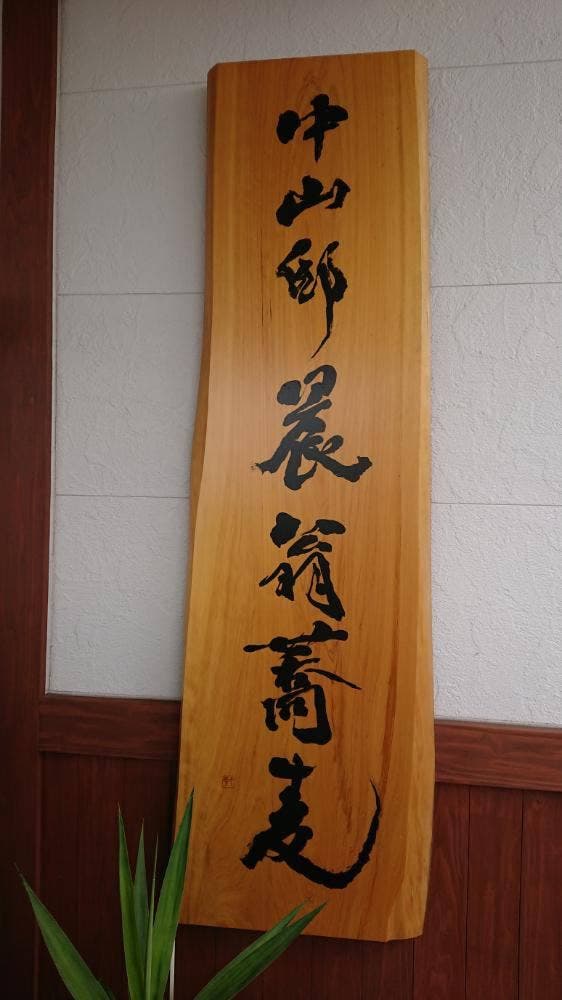 中山邸晨翁蕎麦